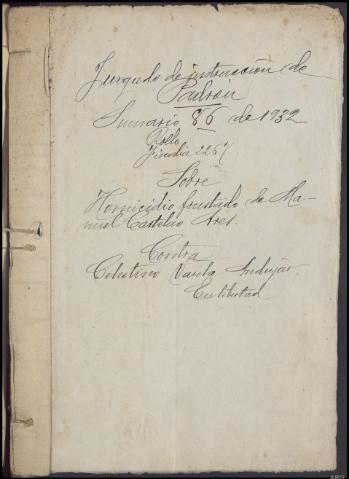 Juzgado de instrucción de
Padrón
Sumario 86 de 1932
Rollo
Fiscalía 2267
Sobre
Homicidio frustado de Ma-
nuel Castelao Ares.
Contra
Celestino Varela
En libertad
ARG